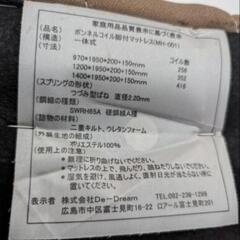 家庭用品品質表示に基づく表示
品名：ボンネルコイル脚付マットレス(MH-001)
構造：一体式
寸法： コイル数
970×1950×200+150mm 256
1200×1950×200+150mm 352
1400×1950×200+150mm 416
《スプリングの形状》
つづみ型ばね 直径2.20mm
《鋼線の種類》
SWRH65A 硬鋼線A種
《詰物の材料》
二重キルト、ウレタンフォーム
《外装生地の組成》
ポリエステル100%
《使用上の注意》
無理に折り曲げないでください。
マットレスの上で、飛んだり、跳ねたりしないでください
直射日光が
表示者 株式会社De-Dream TEL.082-236-1299
広島市中区富士見町16-22 ロアール富士見町201